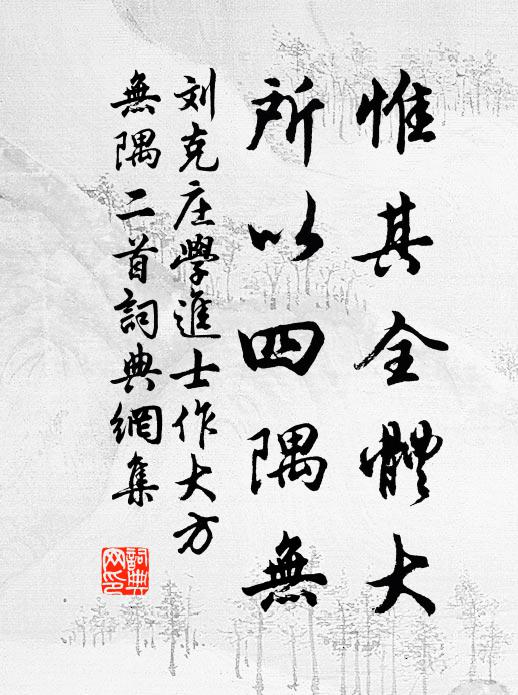 惟其全體大
所以四隅無
刘克庄學進士作大方
無隅二首詞典網集
詞典网印